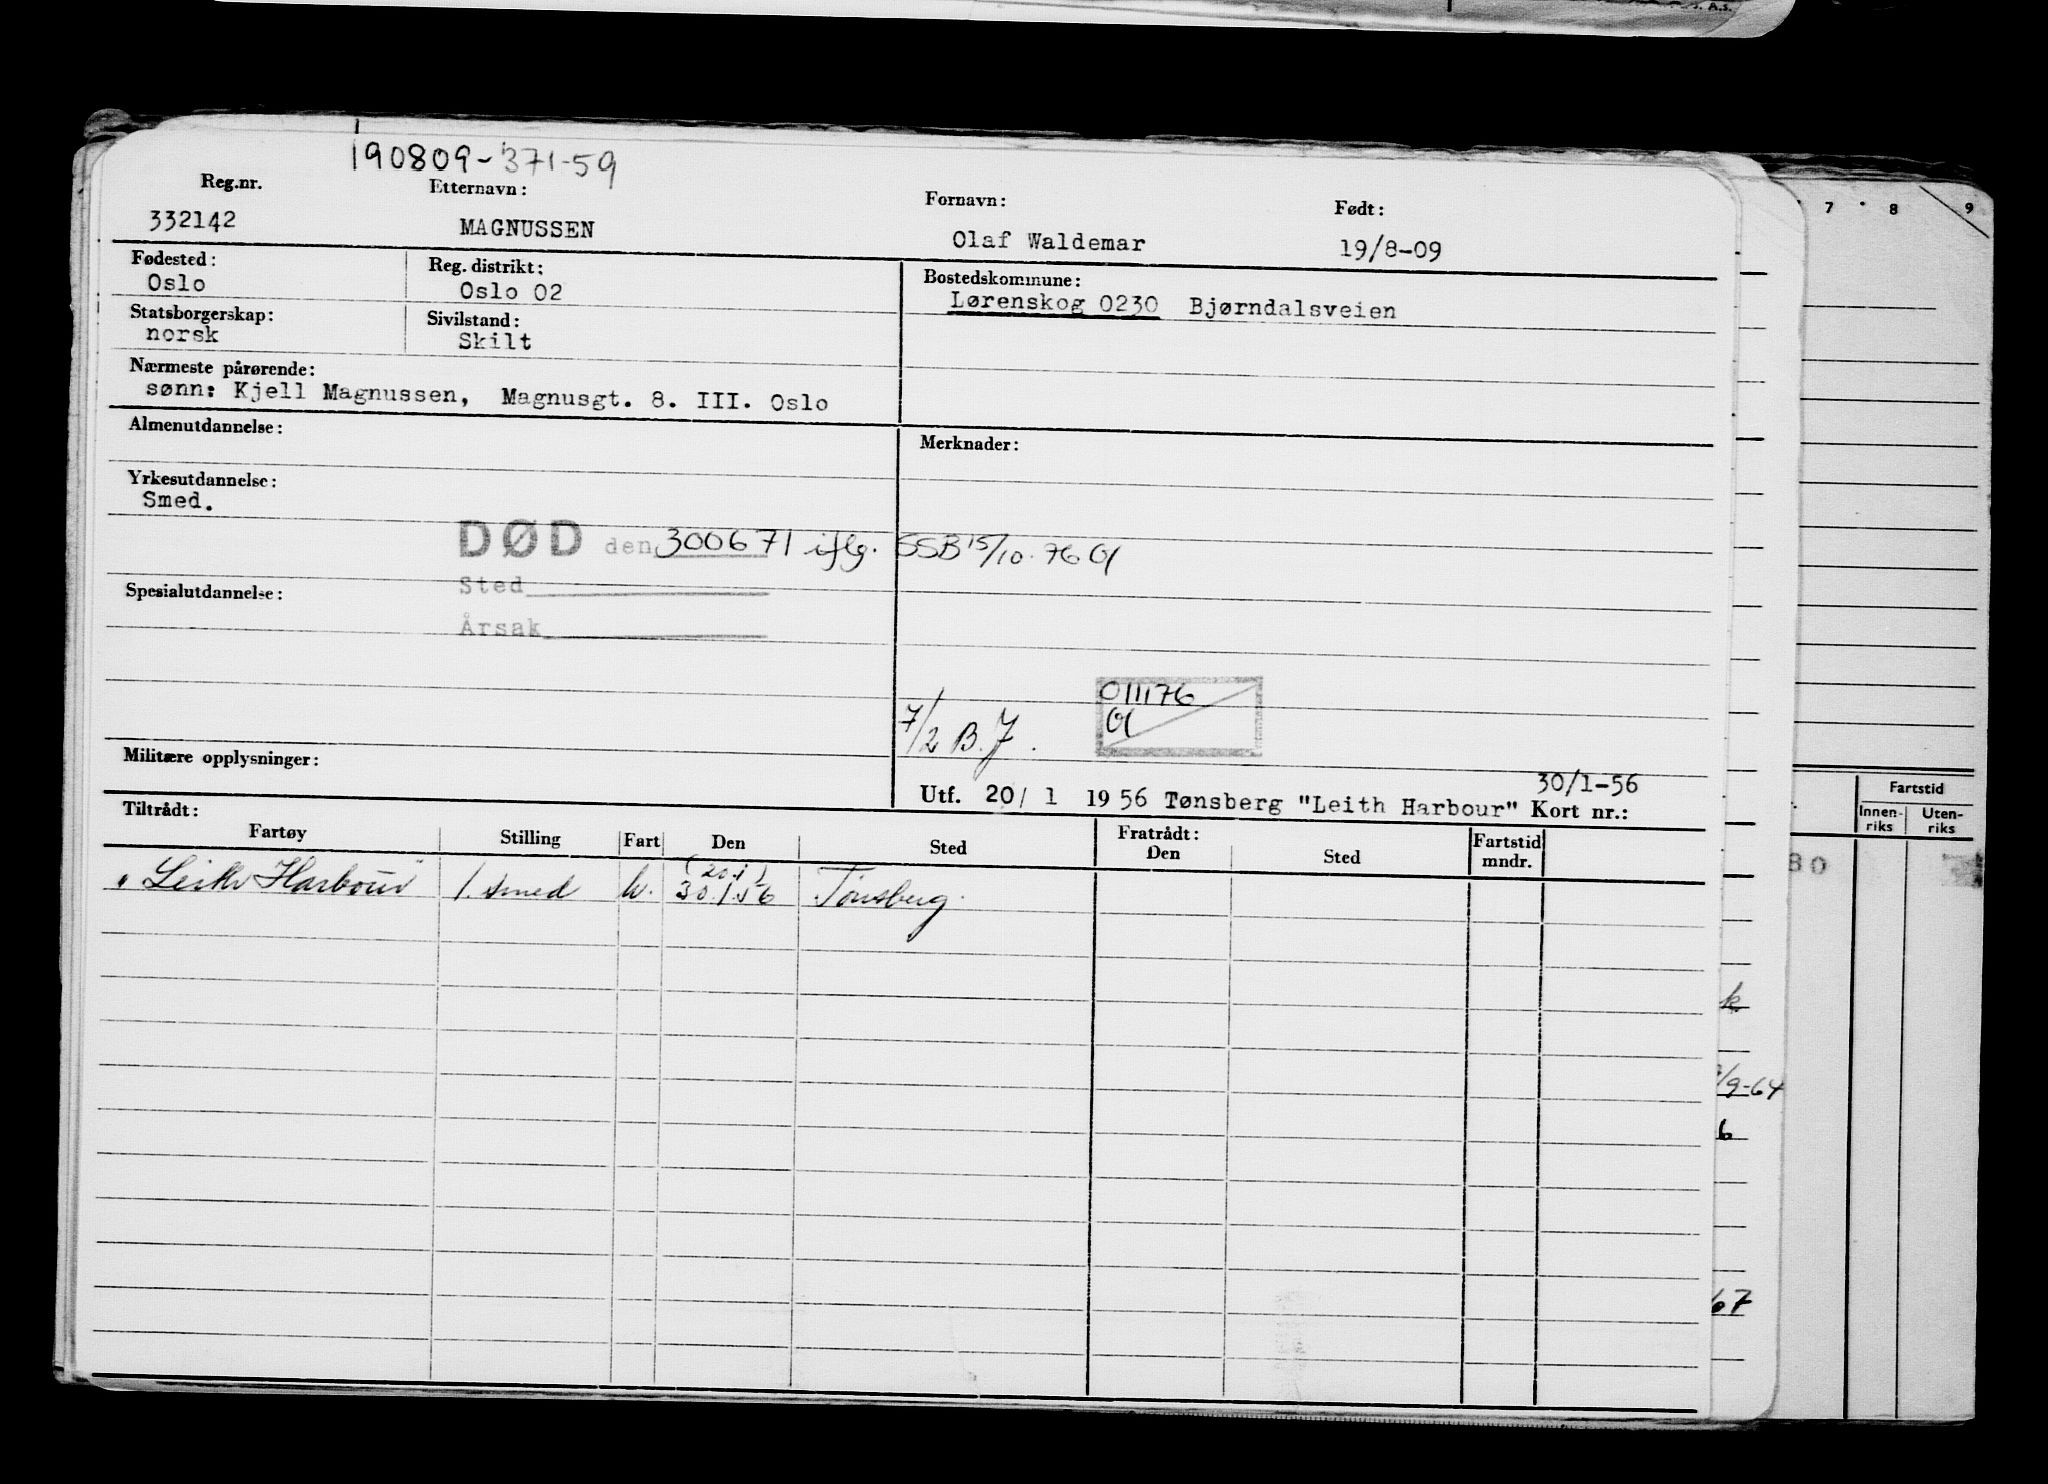 S. A.s.
190809-371-59
Reg.nr. Etternavn: Fornavn: Født:
332142 MAGNUSSEN Olaf Waldemar 19/8-09
Fødested: Reg. distrikt: Bostedskommune:
Oslo Oslo 02 Lørenskog 0230 Bjørndalsveien
Statsborgerskap: Sivilstand:
norsk Skilt
Nærmeste pårørende:
sønn: Kjell Magnussen, Magnusgt. 8. III. Oslo
Almenutdannelse: Merknader:
Yrkesutdannelse:
Smed.
DØD den 300671 iflg. SSB 15/10.76
Sted
Spesialutdannelse:
Årsak
011176
7/2 B.J.
Militære opplysninger:
30/1-56
Utf. 20/ 1 1956 Tønsberg "Leith Harbour" Kort nr.:
Tiltrådt: Fratrådt: Fartstid mndr.
Fartøy Stilling Fart Den Sted Den Sted
(20.1)
"Leith Harbour" 1. smed h. 30.1.56 Tønsberg.
7 8 9
Fartstid
Innen-riks Uten-riks
80
k
/9-64
6
67